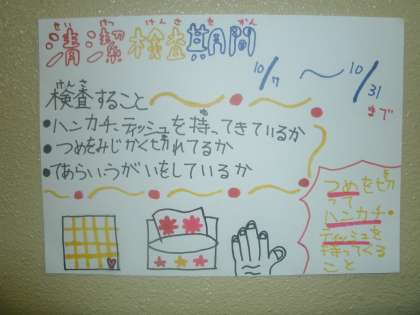 せいけつけんさきかん
清潔検査期間
10/7 〜 10/31まで
けんさ
検査すること
•ハンカチ、ティッシュを持ってきているか
•つめをみじかく切れてるか
•てあらいうがいをしているか
つめを切
って
ハンカチ•
ティッシュを
持ってくる
こと